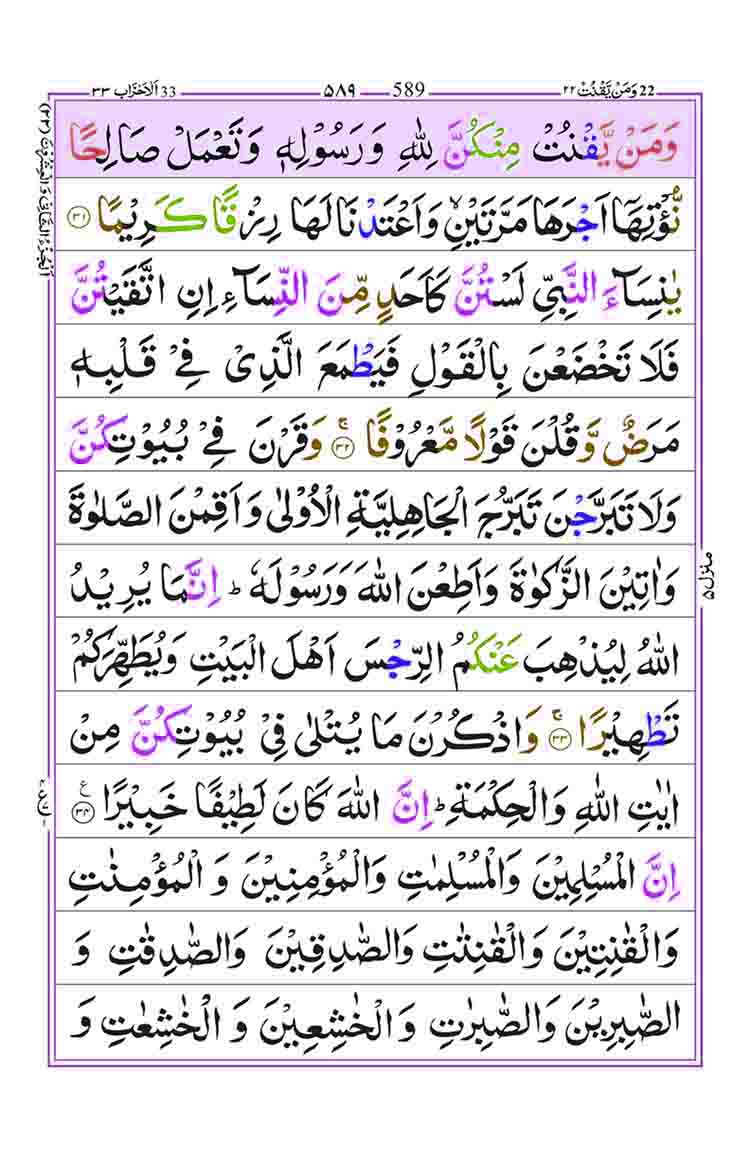 22 وَمَنْ يَّقْنُتْ ٢٢ 589 ٥٨٩ 33 اَلْاَحْزَاب ٣٣
وَمَنْ يَّقْنُتْ مِنْكُنَّ لِلّٰهِ وَرَسُوْلِهٖ وَتَعْمَلْ صَالِحًا
نُّؤْتِهَاۤ اَجْرَهَا مَرَّتَيْنِۙ وَاَعْتَدْنَا لَهَا رِزْقًا كَرِيْمًا ۝٣١
يٰنِسَآءَ النَّبِيِّ لَسْتُنَّ كَاَحَدٍ مِّنَ النِّسَآءِ اِنِ اتَّقَيْتُنَّ
فَلَا تَخْضَعْنَ بِالْقَوْلِ فَيَطْمَعَ الَّذِيْ فِيْ قَلْبِهٖ
مَرَضٌ وَّقُلْنَ قَوْلًا مَّعْرُوْفًا ۝٣٢ۚ وَقَرْنَ فِيْ بُيُوْتِكُنَّ
وَلَا تَبَرَّجْنَ تَبَرُّجَ الْجَاهِلِيَّةِ الْاُوْلٰى وَاَقِمْنَ الصَّلٰوةَ
وَاٰتِيْنَ الزَّكٰوةَ وَاَطِعْنَ اللّٰهَ وَرَسُوْلَهٗ ؕ اِنَّمَا يُرِيْدُ
اللّٰهُ لِيُذْهِبَ عَنْكُمُ الرِّجْسَ اَهْلَ الْبَيْتِ وَيُطَهِّرَكُمْ
تَطْهِيْرًا ۝٣٣ۚ وَاذْكُرْنَ مَا يُتْلٰى فِيْ بُيُوْتِكُنَّ مِنْ
اٰيٰتِ اللّٰهِ وَالْحِكْمَةِ ؕ اِنَّ اللّٰهَ كَانَ لَطِيْفًا خَبِيْرًا ۝٣٤ع
اِنَّ الْمُسْلِمِيْنَ وَالْمُسْلِمٰتِ وَالْمُؤْمِنِيْنَ وَ الْمُؤْمِنٰتِ
وَالْقٰنِتِيْنَ وَالْقٰنِتٰتِ وَالصّٰدِقِيْنَ وَالصّٰدِقٰتِ وَ
الصّٰبِرِيْنَ وَالصّٰبِرٰتِ وَ الْخٰشِعِيْنَ وَ الْخٰشِعٰتِ وَ
منزل ٥